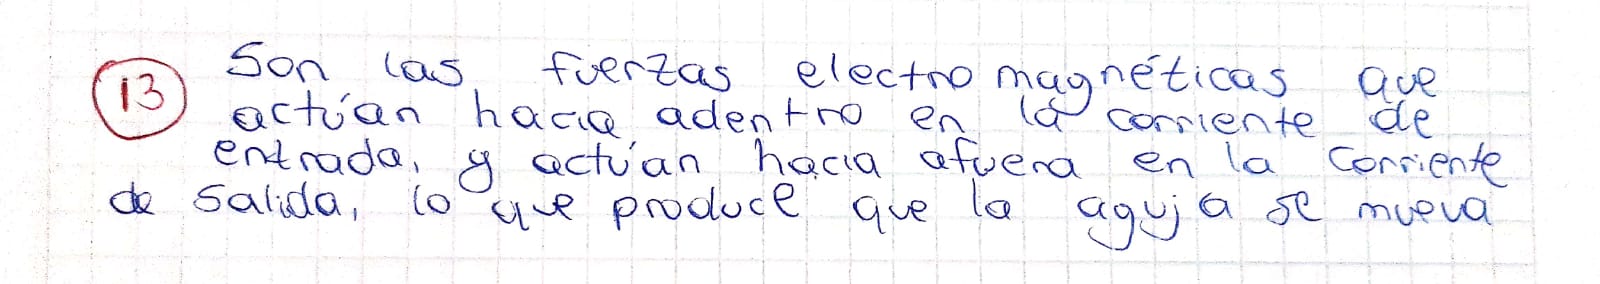 13 Son las fuerzas electromagnéticas que
actúan hacia adentro en la corriente de
entrada, y actúan hacia afuera en la corriente
de salida, lo que produce que la aguja se mueva